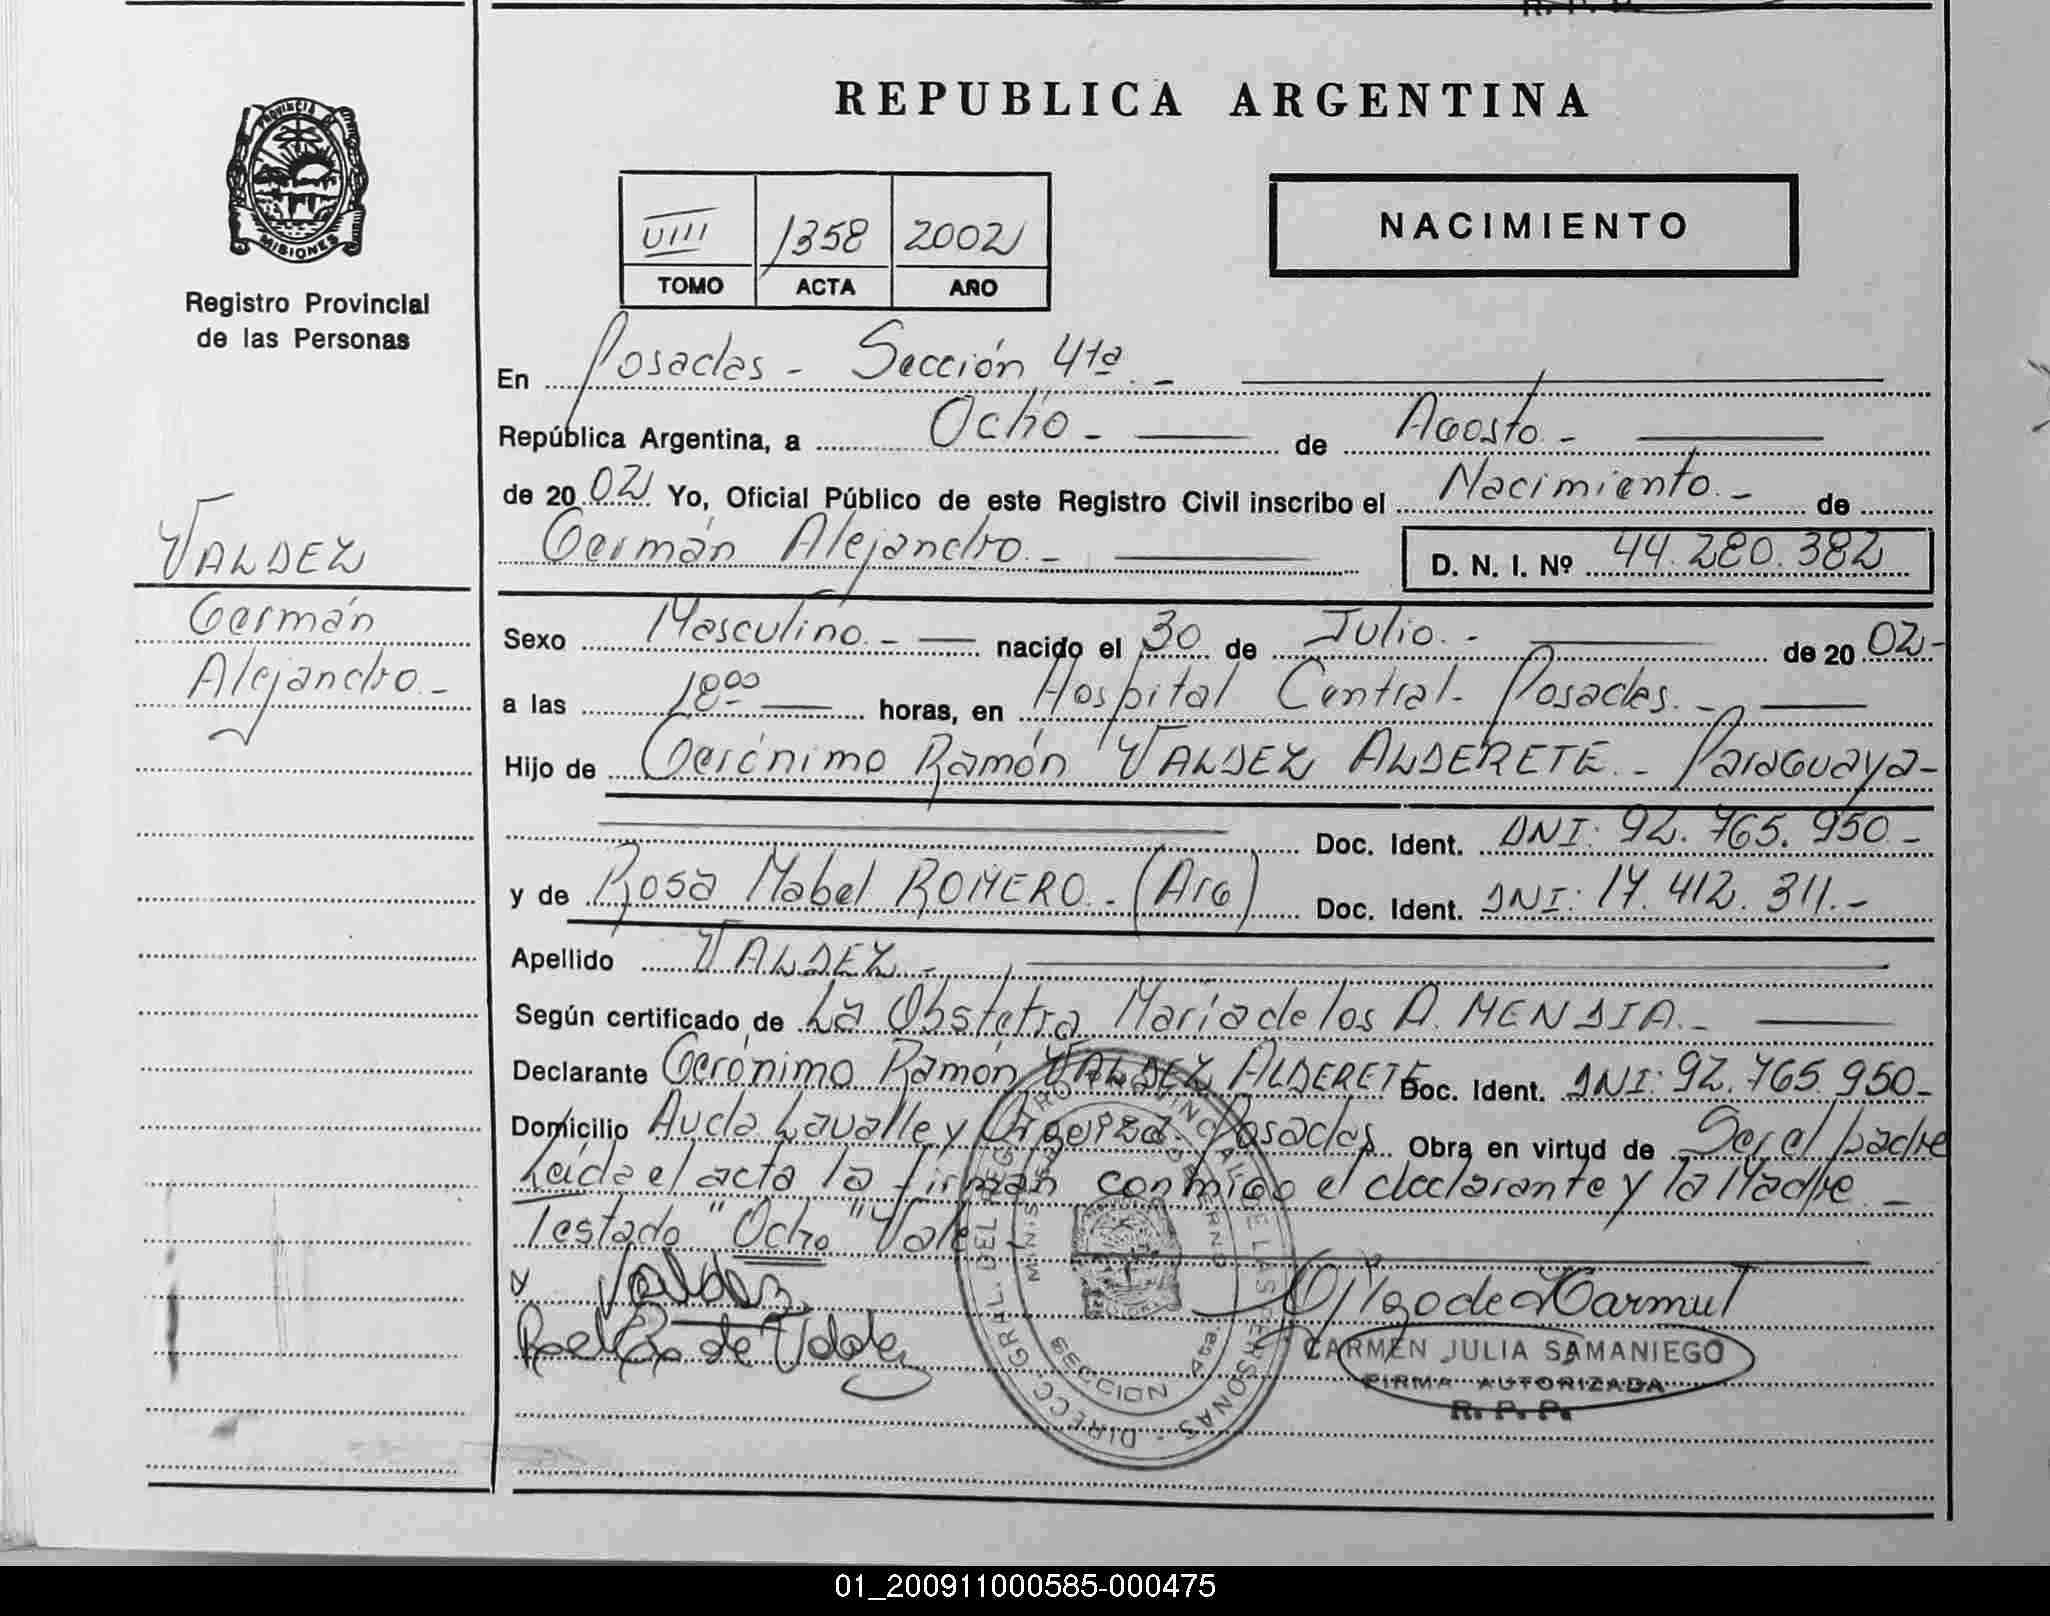 REPUBLICA ARGENTINA
PROVINCIA DE
MISIONES
Registro Provincial
de las Personas
VIII 1358 2002
TOMO ACTA AÑO
NACIMIENTO
En Posadas - Sección 4ta. -
República Argentina, a Ocho - de Agosto -
de 2002 Yo, Oficial Público de este Registro Civil inscribo el Nacimiento. - de
Germán Alejandro. - D. N. I. Nº 44.280.382
VALDEZ
Germán
Alejandro. -
Sexo Masculino. - nacido el 30 de Julio. - de 2002-
a las 18⁰⁰ horas, en Hospital Central - Posadas. -
Hijo de Gerónimo Ramón VALDEZ ALDERETE. - Paraguaya-
Doc. Ident. DNI: 92.765.950 -
y de Rosa Mabel ROMERO. - (Arg) Doc. Ident. DNI: 17.412.311. -
Apellido VALDEZ. -
Según certificado de La Obstetra María de los A. MENDIA. -
Declarante Gerónimo Ramón VALDEZ ALDERETE Doc. Ident. DNI: 92.765.950-
Domicilio Avda Lavalle y Urquiza. Posadas Obra en virtud de Ser el padre
Leída el acta la firman conmigo el declarante y la Madre. -
Testado "Ocho" Vale
x Valdez
de
CARMEN JULIA SAMANIEGO
FIRMA AUTORIZADA
R. P. P.
DIRECC. GRAL. DEL REGISTRO PROVINCIAL DE LAS PERSONAS
SECCION 4ta.
01_200911000585-000475